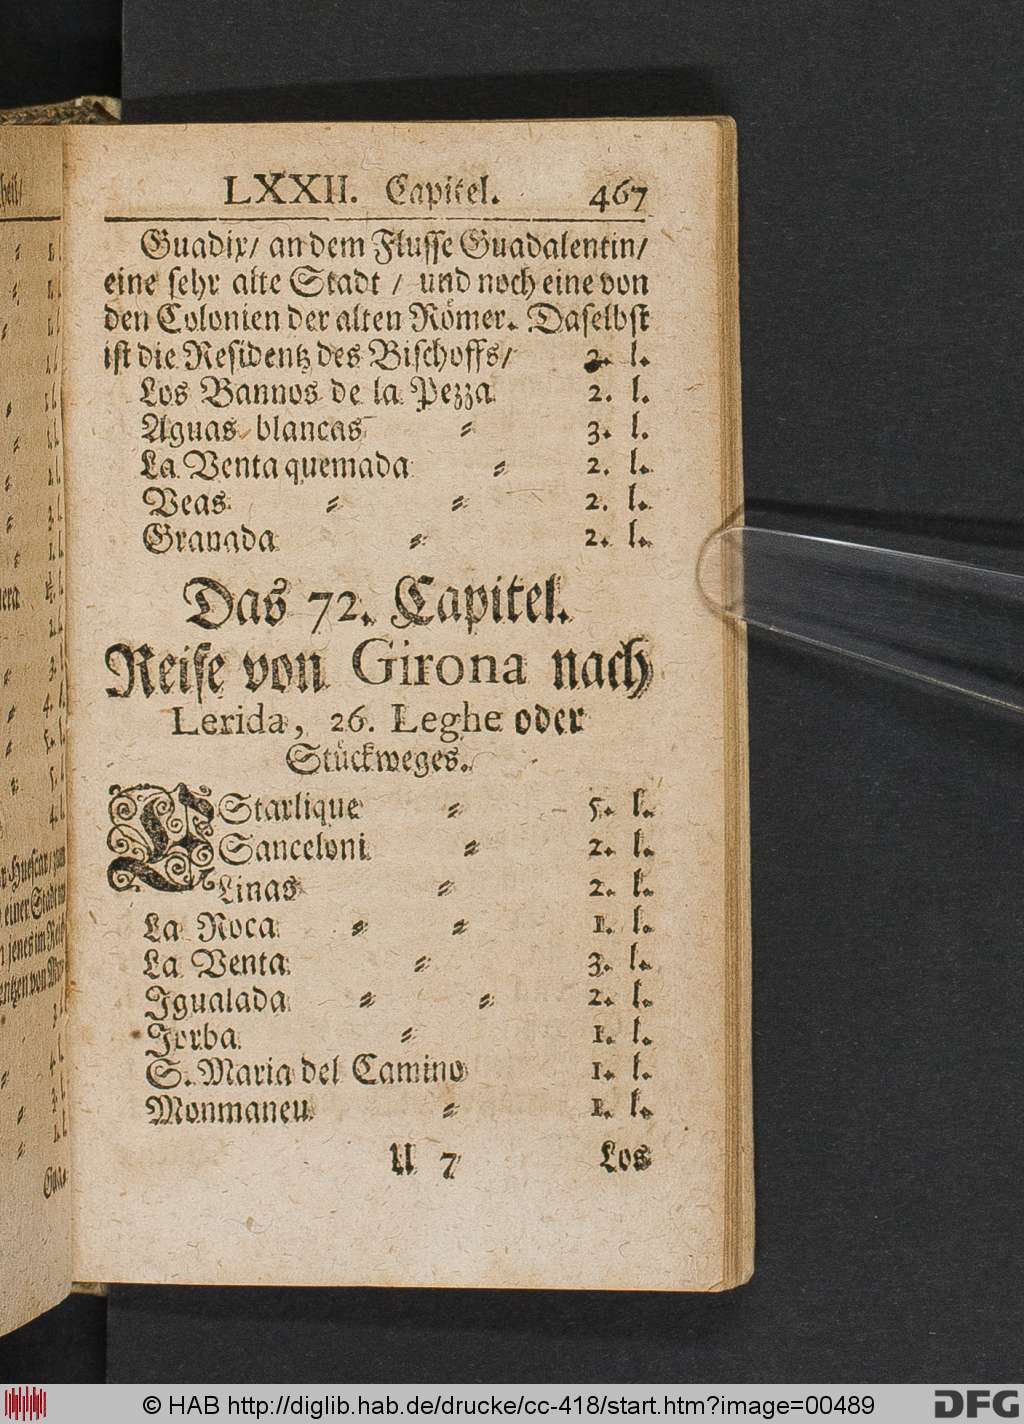 LXXII. Capitel. 467
Guadix/ an dem Flusse Guadalentin/
eine sehr alte Stadt / und noch eine von
den Colonien der alten Römer. Daselbst
ist die Residentz des Bischoffs/ 2. l.
Los Bannos de la Pezza 2. l.
Aguas blancas 3. l.
La Venta quemada 2. l.
Veas 2. l.
Granada 2. l.
Das 72. Capitel.
Reise von Girona nach
Lerida, 26. Leghe oder
Stückweges.
LStarlique 5. l.
Sanceloni 2. l.
Linas 2. l.
La Roca 1. l.
La Venta 3. l.
Igualada 2. l.
Jorba 1. l.
S. Maria del Camino 1. l.
Monmaneu 1. l.
U 7 Los
© HAB http://diglib.hab.de/drucke/cc-418/start.htm?image=00489
DFG